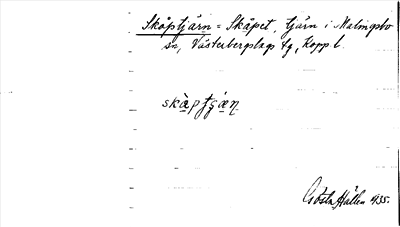 Skåptjärn = Skåpet, tjärn i Malingsbo
sn, Västerbergslags tg, Kopp l.
skàptjä̀n
Gösta Hallén 1935.